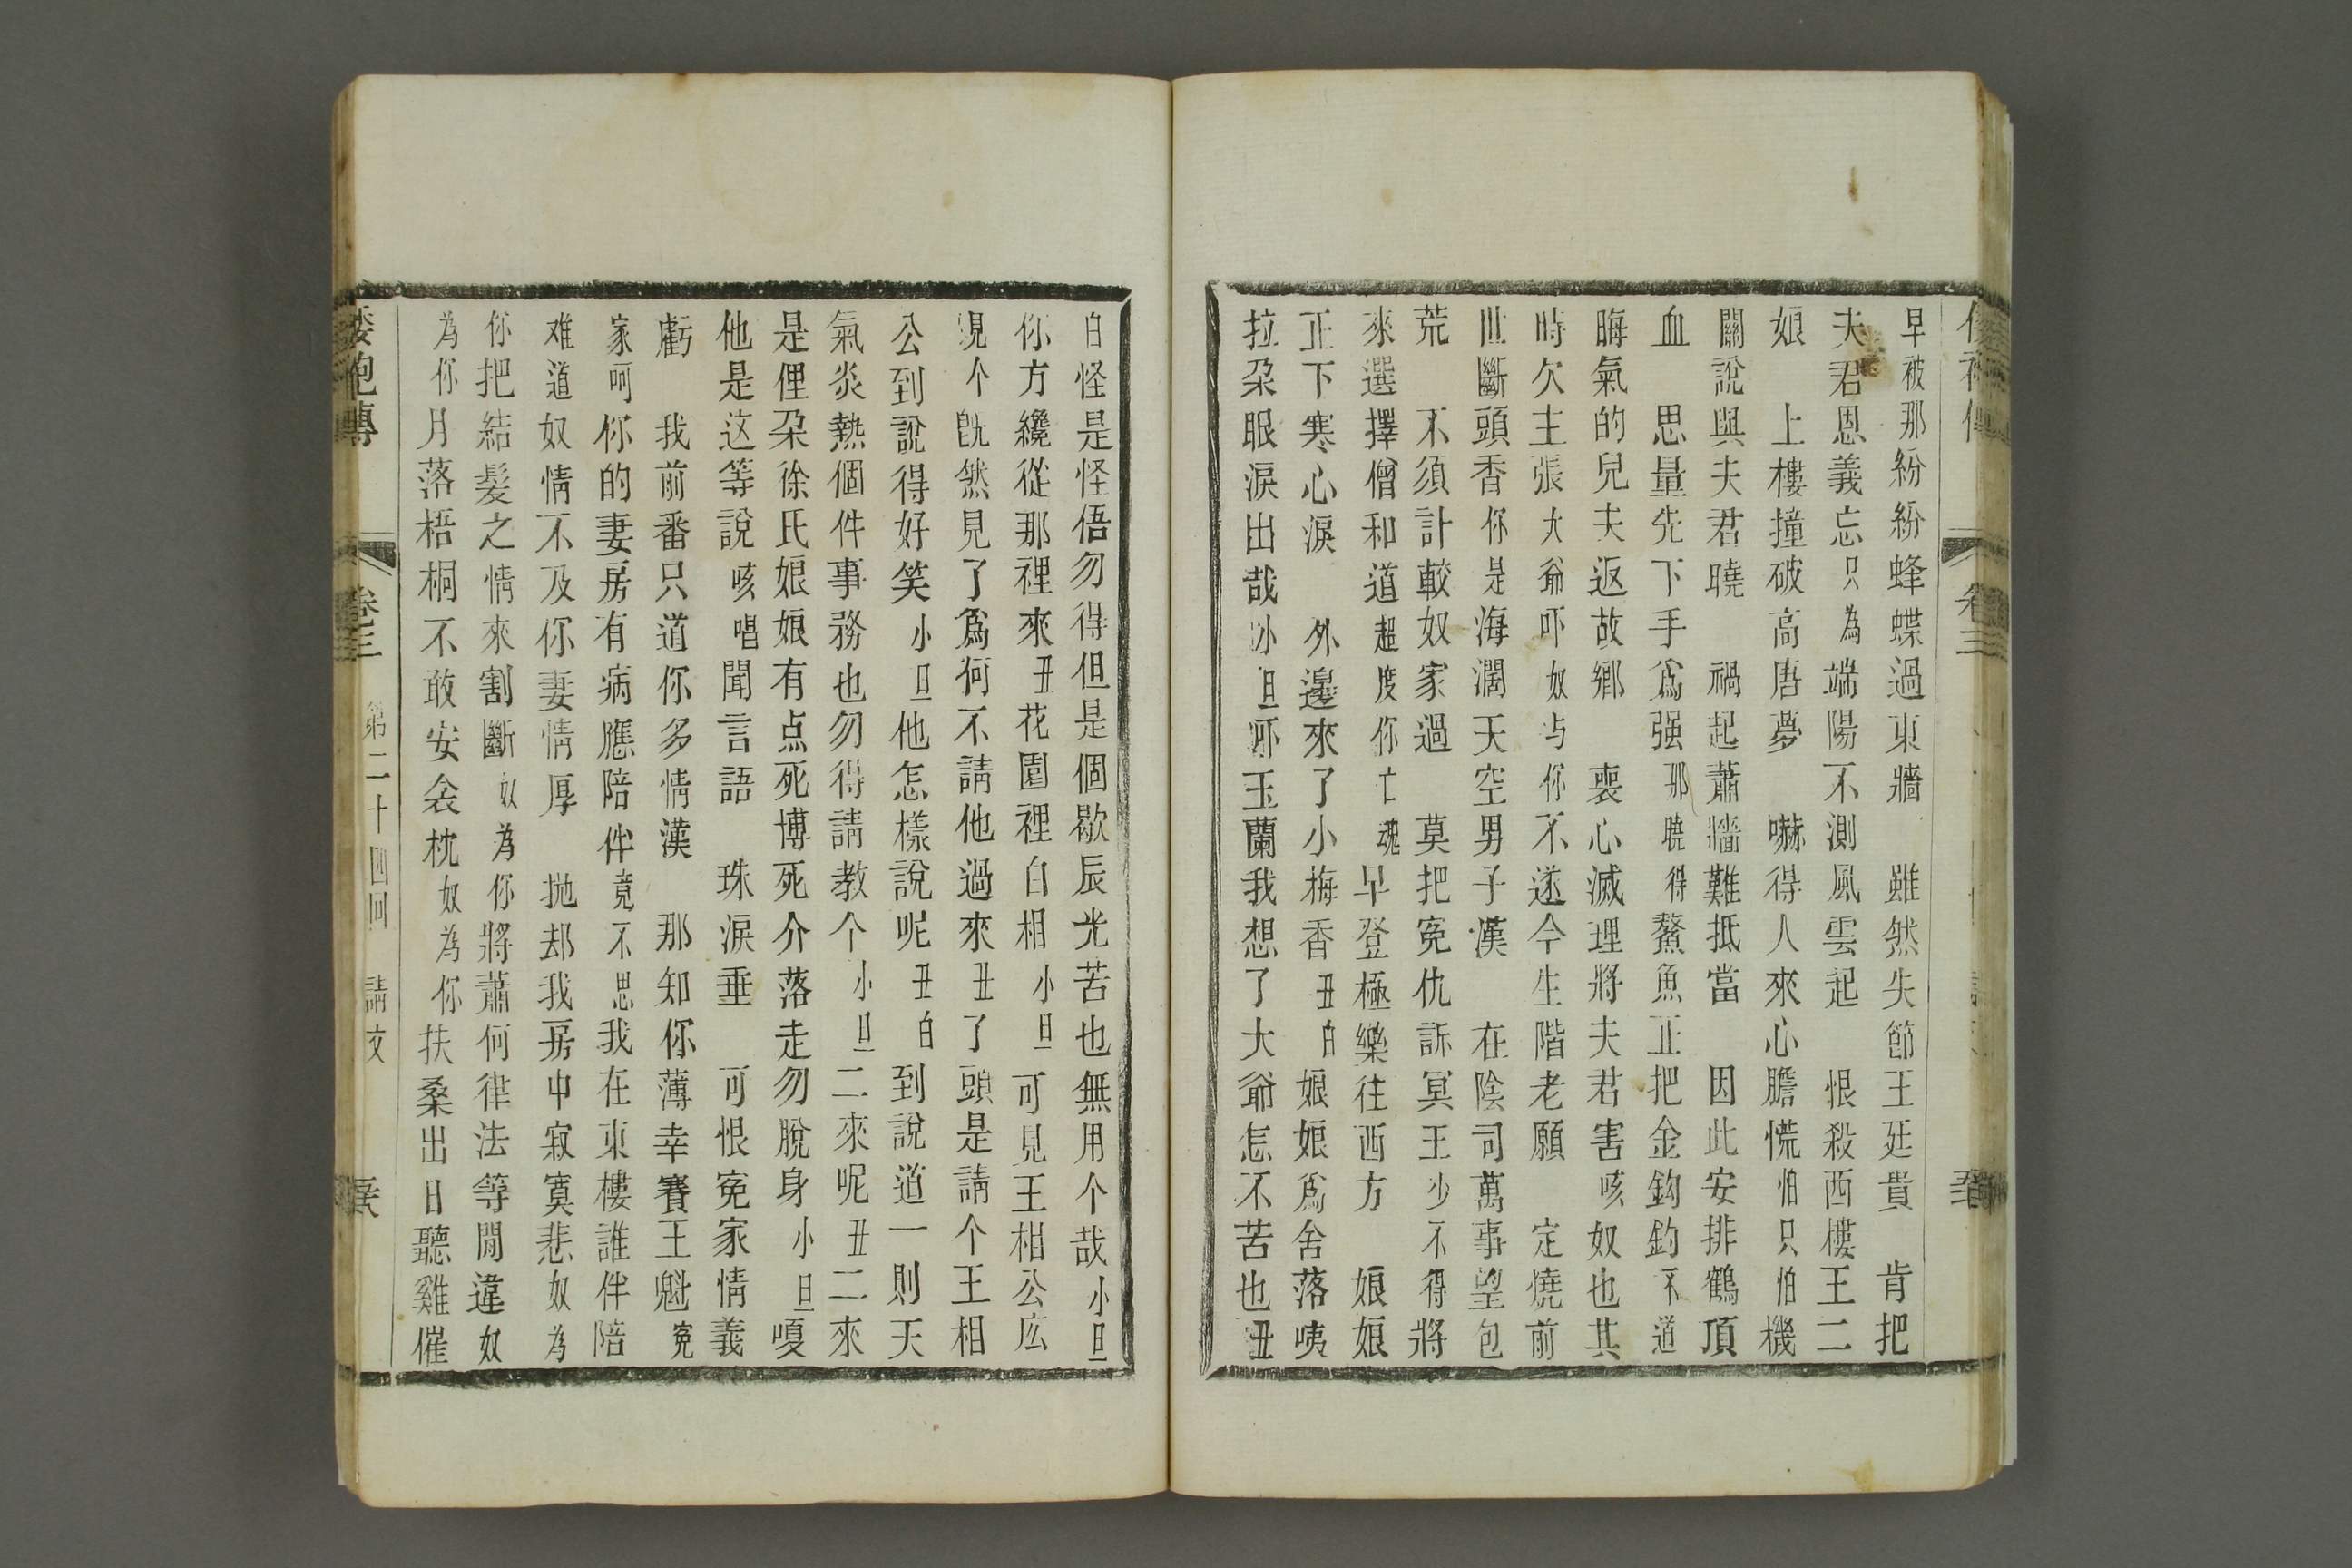 早被那紛紛蜂蝶過東牆　雖然失節王廷貴　肯把
夫君恩義忘只為端陽不測風雲起　恨殺西樓王二
娘　上樓撞破高唐夢　嚇得人來心膽慌怕只怕機
關說與夫君曉　禍起蕭牆難抵當　因此安排鶴頂
血　思量先下手爲强那曉得鰲魚正把金鈎釣不道
晦氣的兒夫返故鄉　喪心滅理將夫君害咳奴也其
時欠主張大爺吓奴与你不遂今生階老願　定燒前
世斷頭香你是海濶天空男子漢　在陰司萬事望包
荒　不須計較奴家過　莫把寃仇訴冥王少不得將
來選擇僧和道超度你亡魂早登極樂往西方　娘娘
正下寒心淚　外邊來了小梅香丑白娘娘爲舍落咦
拉朶眼淚出哉小旦吓玉蘭我想了大爺怎不苦也丑
卷三
白怪是怪俉勿得但是個歇辰光苦也無用个哉小旦
你方纔從那裡來丑花園裡白相小旦可見王相公庅
見个旣然見了爲何不請他過來丑了頭是請个王相
公到說得好笑小旦他怎樣說呢丑白到說道一則天
氣炎熱個件事務也勿得請教个小旦二來呢丑二來
是俚朶徐氏娘娘有点死博死介落走勿脫身小旦嗄
他是这等說咳唱聞言語　珠淚垂　可恨寃家情義
虧　我前番只道你多情漢　那知你薄幸賽王魁寃
家呵你的妻房有病應陪伴竟不思我在東樓誰伴陪
难道奴情不及你妻情厚　拋却我房中寂寞悲奴為
你把結髮之情來割斷奴為你將蕭何律法等閒違奴
為你月落梧桐不敢安衾枕奴為你扶桑出日聽雞催
倭袍傳　卷三　第二十四回　請支